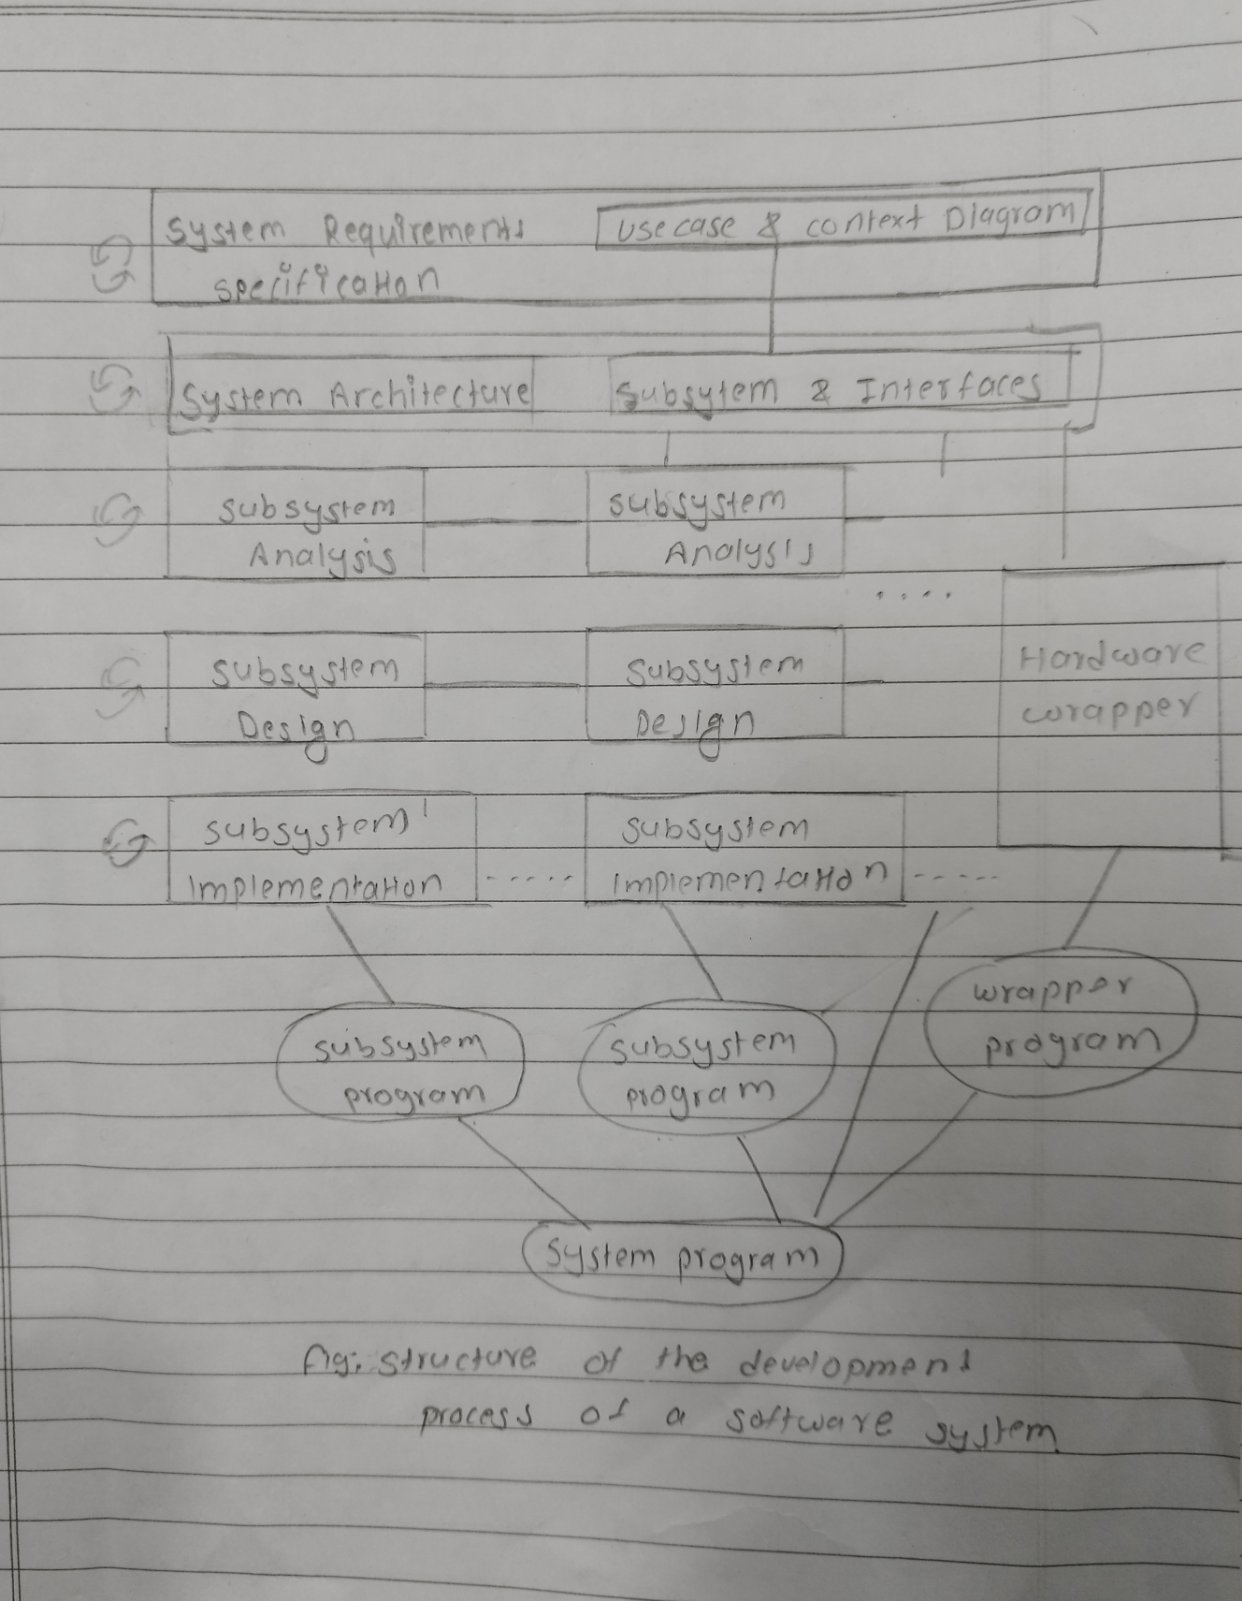 System Requirements
specification
Use case & context Diagram
System Architecture
Subsytem & Interfaces
subsystem
Analysis
subsystem
Analysis
....
Hardware
wrapper
subsystem
Design
subsystem
Design
subsystem
Implementation
.....
subsystem
Implementation
.....
subsystem
program
subsystem
program
wrapper
program
system program
fig: structure of the development
process of a software system